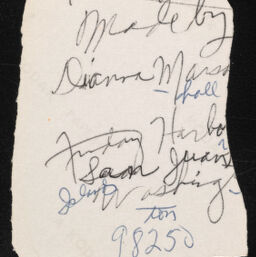 Made by
Dianna Marsa
- hall
Friday Harbo
r
San Juan
Island
Washing-
ton
98250